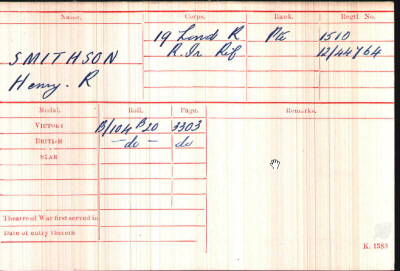 Name. Corps. Rank. Regtl. No.
SMITHSON 19 Lond R Pte 1510
Henry. R R. Ir Rif 12/44764
Medal. Roll. Page. Remarks.
VICTORY B/104 B20 3303
BRITISH -do- do
STAR
Theatre of War first served in
Date of entry therein
K. 1380